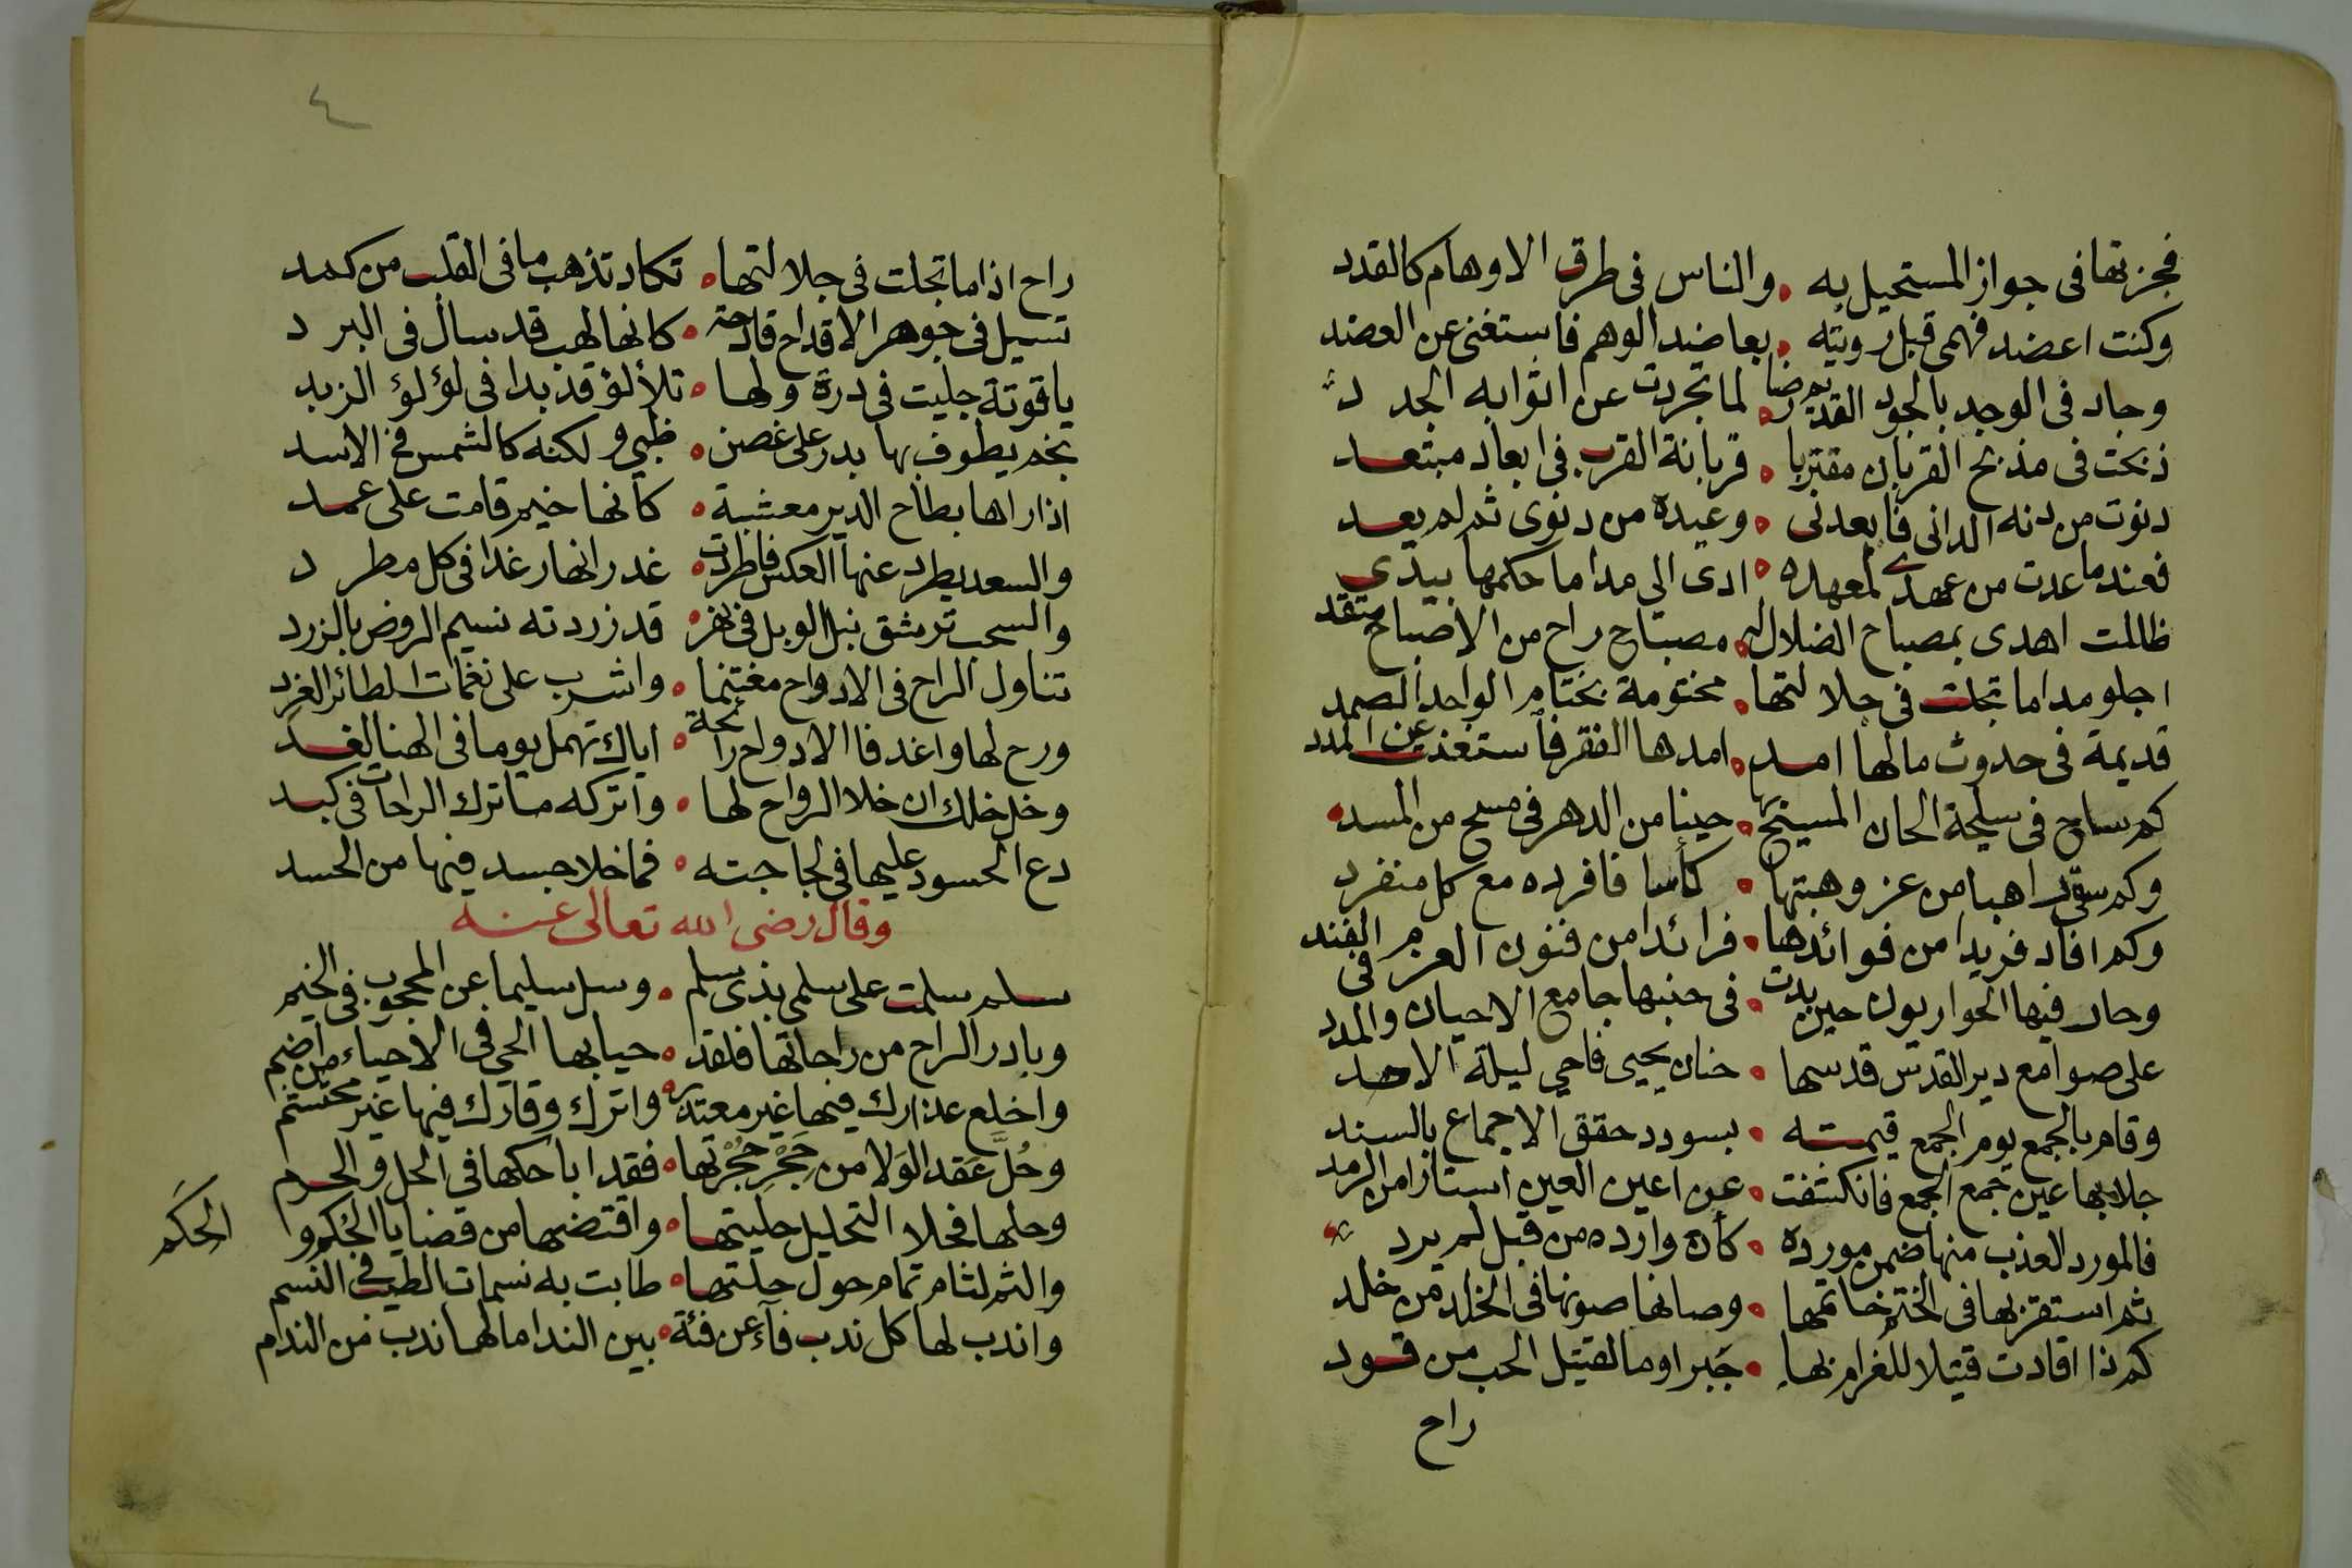 فجزتها في جواز المستحيل به • والناس في طرق الاوهام كالقدد
وكنت اعضد فهمي قبل رويته • بعاضد الوهم فاستغنى عن العضد
وجاد في الوجد بالجود القديم رضا • لما تجردت عن اثوابه الجدد
ذبحت في مذبح القربان مقتربا • قربانة القرب في ابعاد مبتعد
دنوت من دنه الداني فابعدني • وعبده من دنوى ثم لم يعد
فعندما عدت من عهدى لمعهده • ادى الي مداما حكمها بيدي
ظللت اهدى بمصباح الضلال الى • مصباح راح من الاصباح متقد
اجلو مداما تجلت في جلالتها • مختومة بختام الواحد الصمد
قديمة في حدوث مالها امد • امدها الفقر فاستغنت عن المدد
كم ساح في سلحة الحان المسيح بها • حينا من الدهر في مسح من المسد
وكم سقى راهبا من عز وهبتها • كأسا فافرده مع كل منفرد
وكم افاد فريدا من فوائدها • فرائدا من فنون العزم الفند
وحار فيها الحواريون حين بدت • في حنبها جامع الاحيان والمدد في
على صوامع دير القدس قدسها • حنان يحيى فاحي ليلة الاحد
وقام بالجمع يوم الجمع قيمته • بسودد حقق الاجماع بالسند
جلابها عين جمع الجمع فانكشفت • عن اعين العين استارا من الرمد
فالمورد العذب منها ضمن مورده • كأن وارده من قبل لم يرد
ثم استقر بها في الختم خاتمها • وصانها صونها في الخلد من خلد
كم ذا اقادت قتيلا للغرام بها • جبرا وما لقتيل الحب من قود
راح
٤
راح اذا ما تجلت في جلالتها • تكاد تذهب ما في القلب من كمد
تسيل في جوهر الاقداح قادحة • كانها لهب قد سال في البرد
ياقوتة جليت في درة ولها • تلألؤ قد بدا في لؤلؤ الزبد
نجم يطوف بها بدر على غصن • ظبي ولكنه كالشمس في الاسد
اذا راها بطاح الدير معشبة • كأنها خيم قامت على عمد
والسعد يطرد عنها العكس فاطردت • غدرانها رغدا في كل مطرد
والسحب ترشق نبل الوبل في نهر • قد زردته نسيم الروض بالزرد
تناول الراح في الادواح مغتنما • واشرب على نغمات الطائر الغرد
ورح لها واغد فا الادواح رائحة • اياك تهمل يوما في الهنا لغد
وخل خلك ان خلا الرواح لها • واتركه ما ترك الراحات في كبد
دع الحسود عليها في لجاجته • فما خلا جسد فيها من الحسد
وقال رضى الله تعالى عنه
سلم سلمت على سلمى بذى سلم • وسل سليما عن المحجوب في الخيم
وبادر الراح من راحاتها فلقد • حيابها الحي في الاحياء من اضم
واخلع عذارك فيها غير معتذر • واترك وقارك فيها غير محتشم
وحُلَّ عَقد الوَلا من حَجْرِ حُجْرتها • فقد اباحكها في الحل والحرم
وحلها فحلا التحليل حليتها • واقتضها من قضايا الحُكم و
الحِكَم
والثم لثام تمام حول حلتها • طابت به نسمات الطيب في النسم
واندب لها كل ندب فآء عن فئة • بين الندا ما لها ندب من الندم